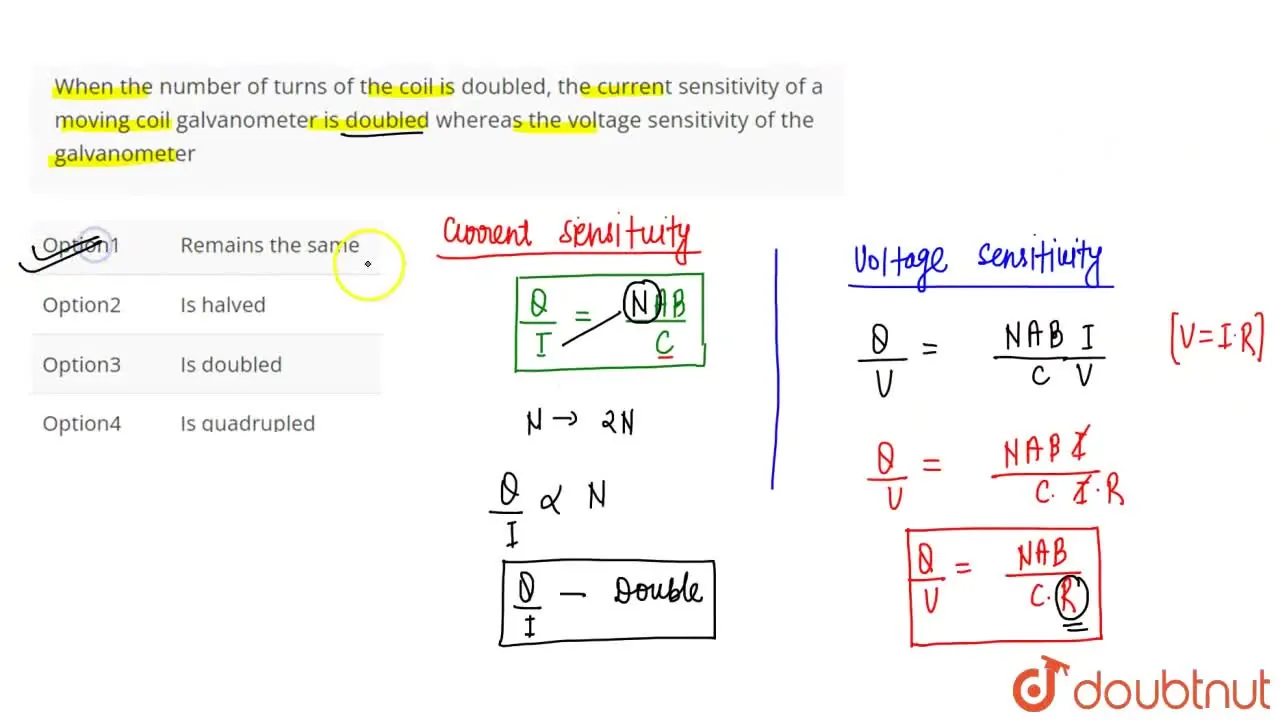 When the number of turns of the coil is doubled, the current sensitivity of a
moving coil galvanometer is doubled whereas the voltage sensitivity of the
galvanometer
Option1 Remains the same
Option2 Is halved
Option3 Is doubled
Option4 Is quadrupled
Current Sensitivity
θ/I = NAB/C
N → 2N
θ/I ∝ N
θ/I — Double
Voltage sensitivity
θ/V = NAB I/C V [V=I·R]
θ/V = NAB I/C. I·R
θ/V = NAB/C·R
doubtnut